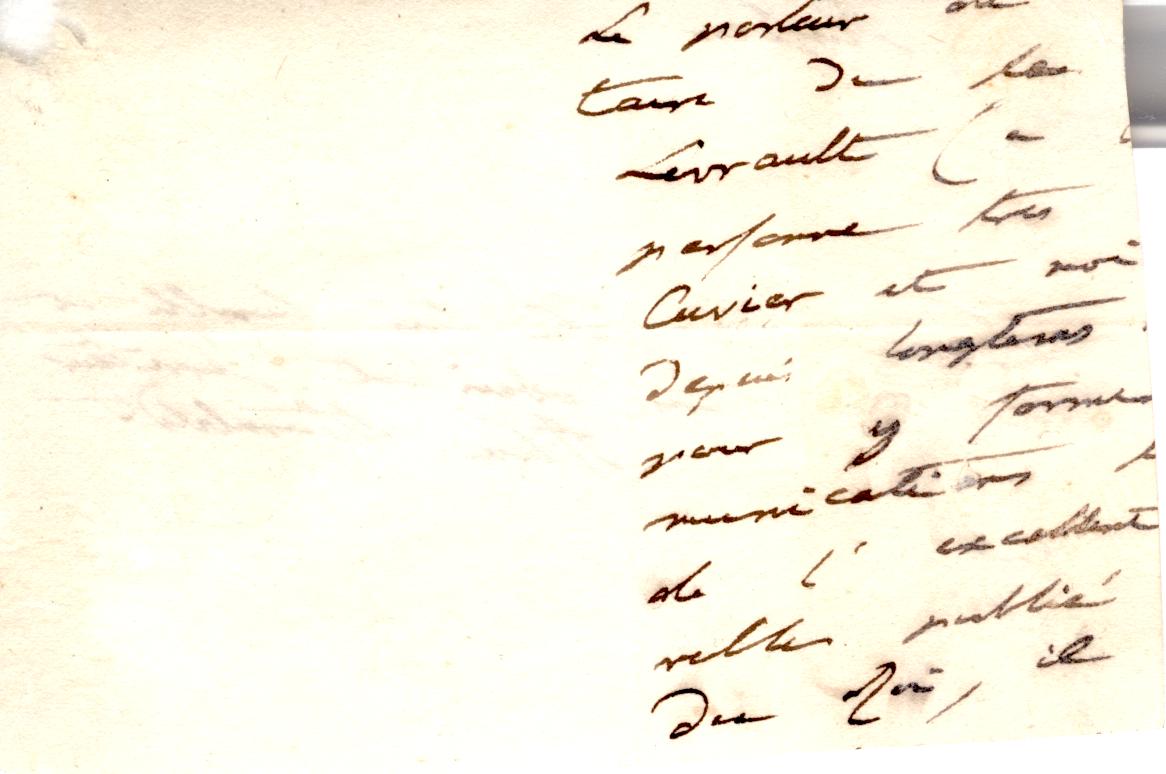 Le porteur de
taire du
Levrault ( a
personne très
Cuvier et moi
depuis longtems
pour y former
munications p
de l' excellent
relles publié
du Roi, il